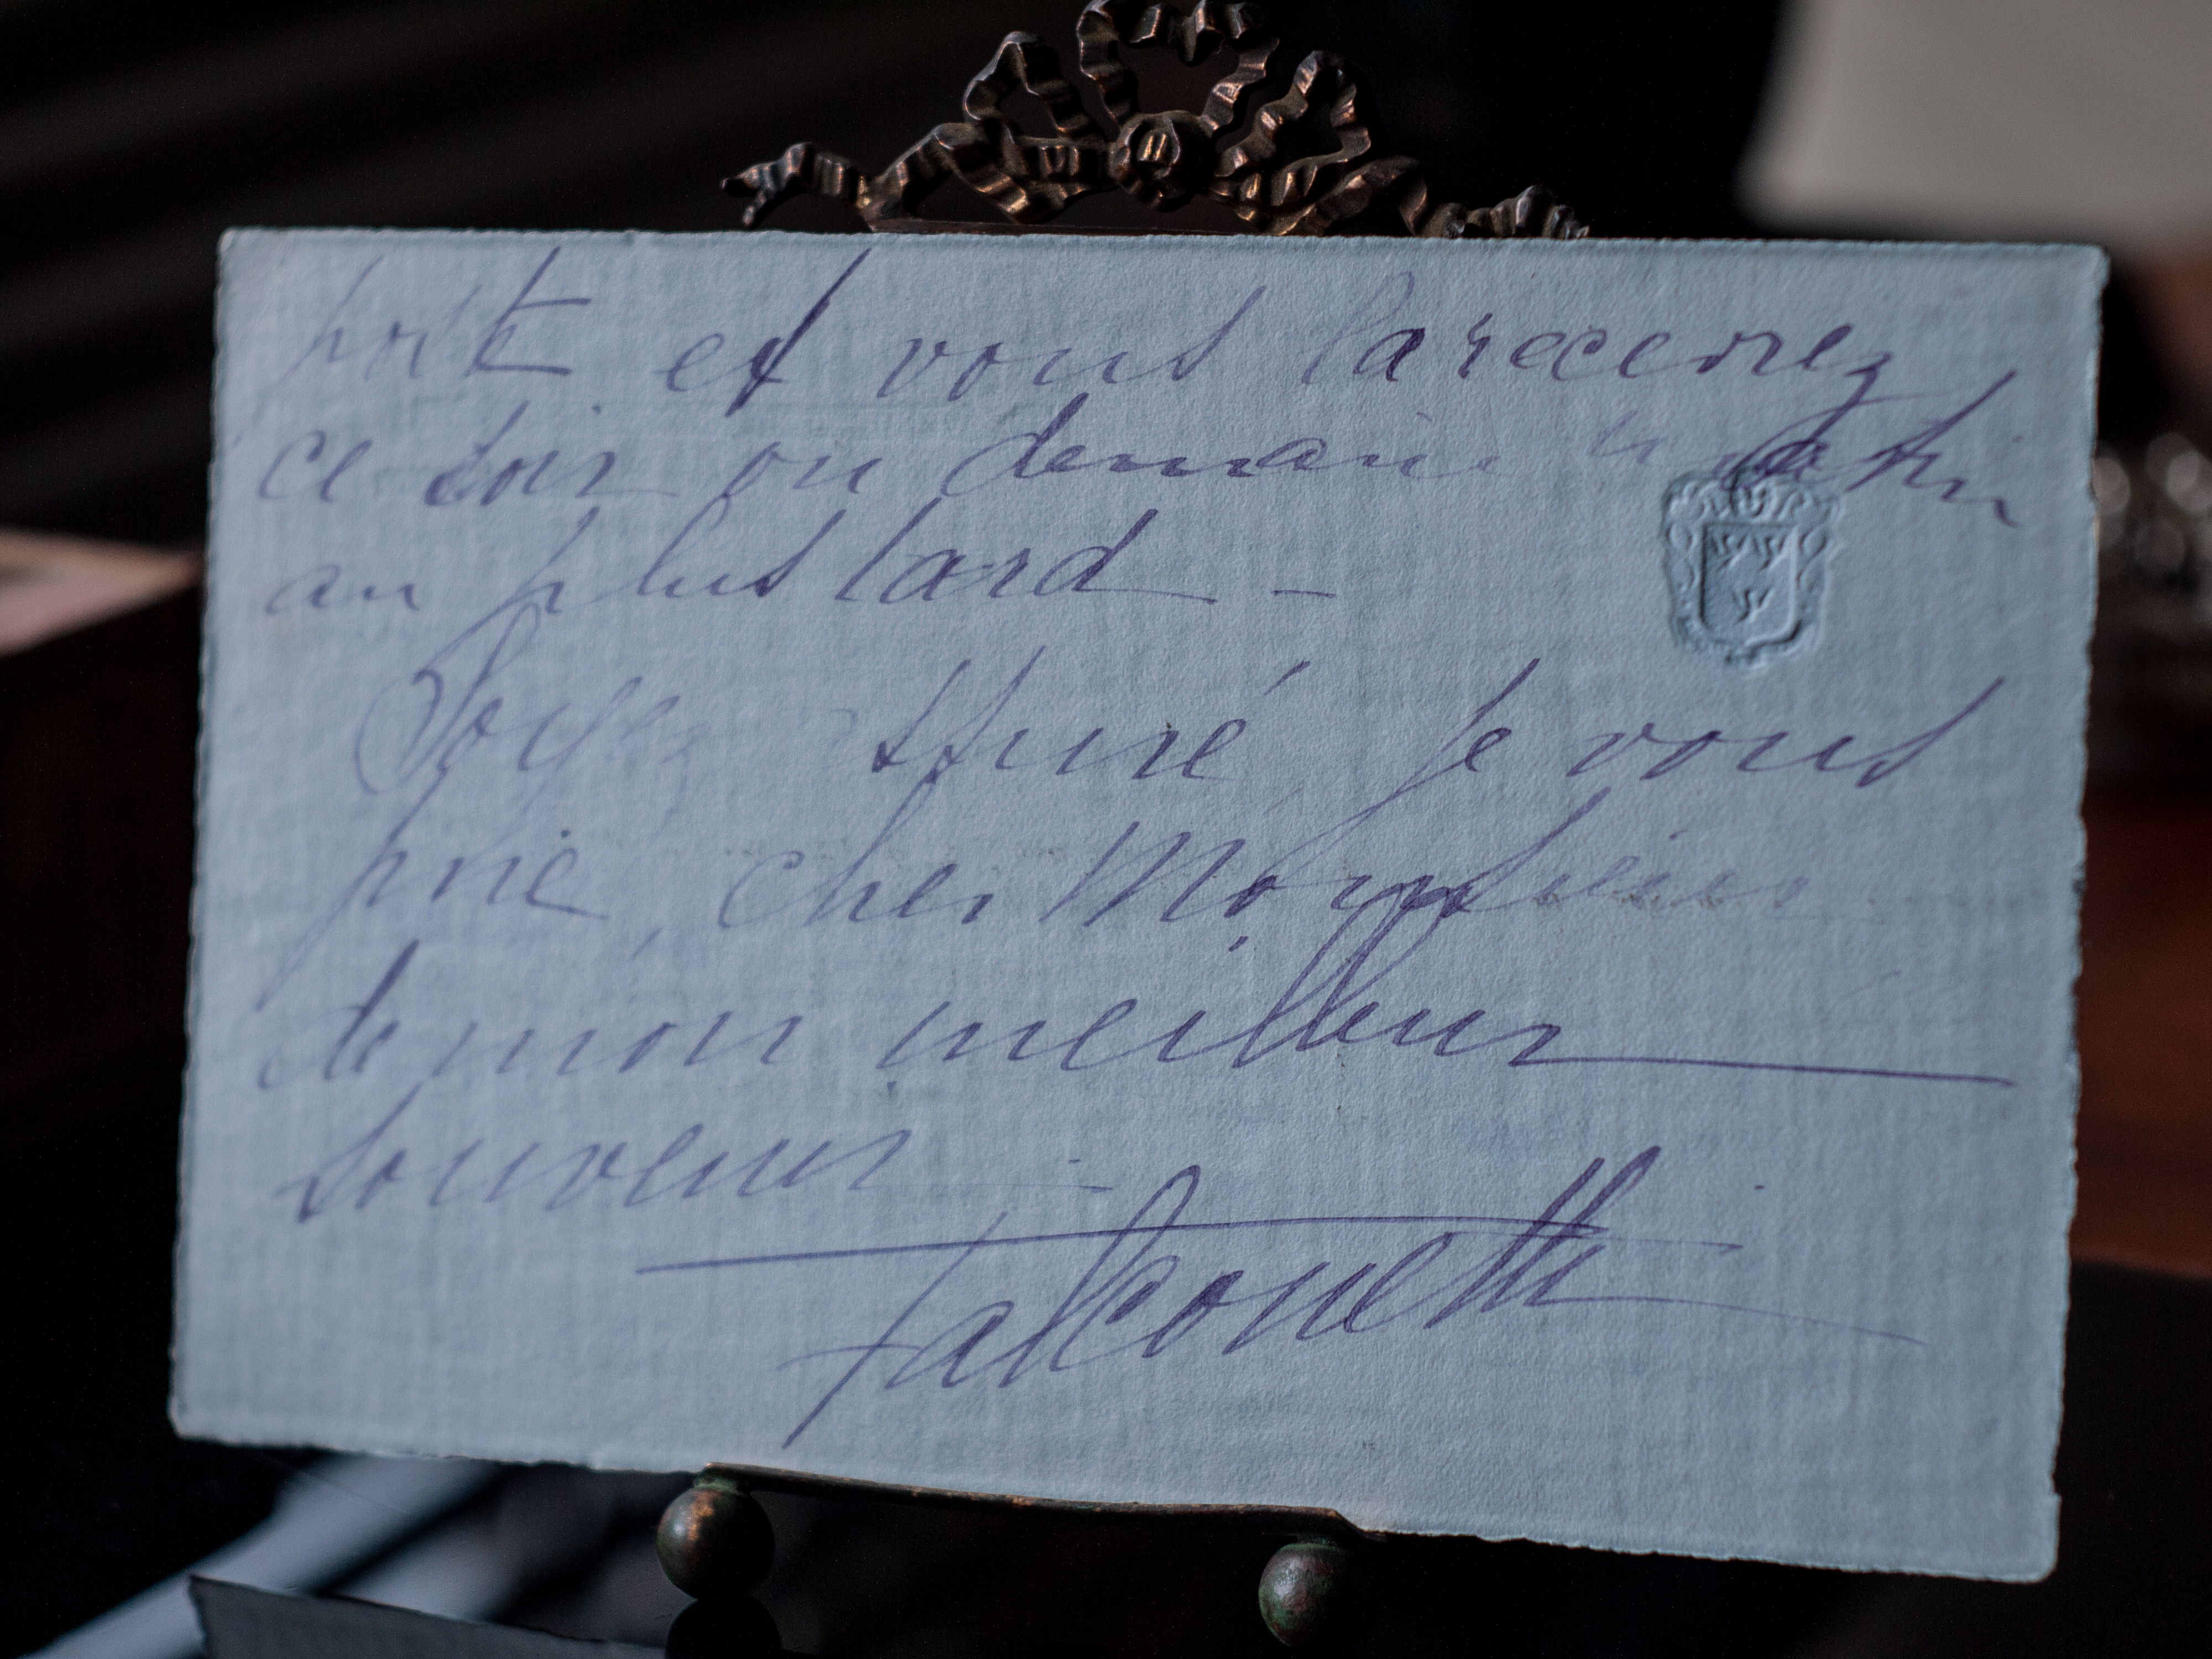 poste et vous la recevrez
ce soir ou demain matin
au plus tard -
Soyez assuré je vous
prie, cher Monsieur
de mon meilleur
souvenir -
Falconetti